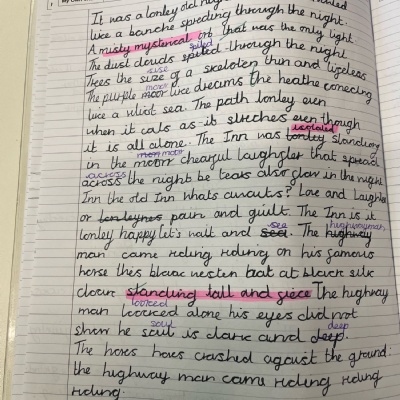 It was a lonley old night
like a banche speeding through the night.
A misty mysterical orb that was the only light
spiled
The dust clouds spilled through the night
size
Trees the size of a skeloten thin and lifeless
moor
The purple moor like dreams the heathe conecting
like a violit sea. The path lonley even
when it cals as it streches even though
isolated
it is all alone. The Inn was lonley standing
moor
in the moor chearful laughgter that spread
across
across the night be tears also glow in the night
Inn the old Inn whats awaits? Love and Laughter
or lonleynes pain and guilt. The Inn is it
sea highwayman
lonley happy let's wait and sea. The
man came rideing rideing on his famous
horse this black nesten bat at black silk
clown standing tall and feice The highway
looked
man loorced alone his eyes did not
soul
show he soul is dark and deep.
deep
The hores hovs crashed against the ground.
the highway man came rideing rideing
rideing